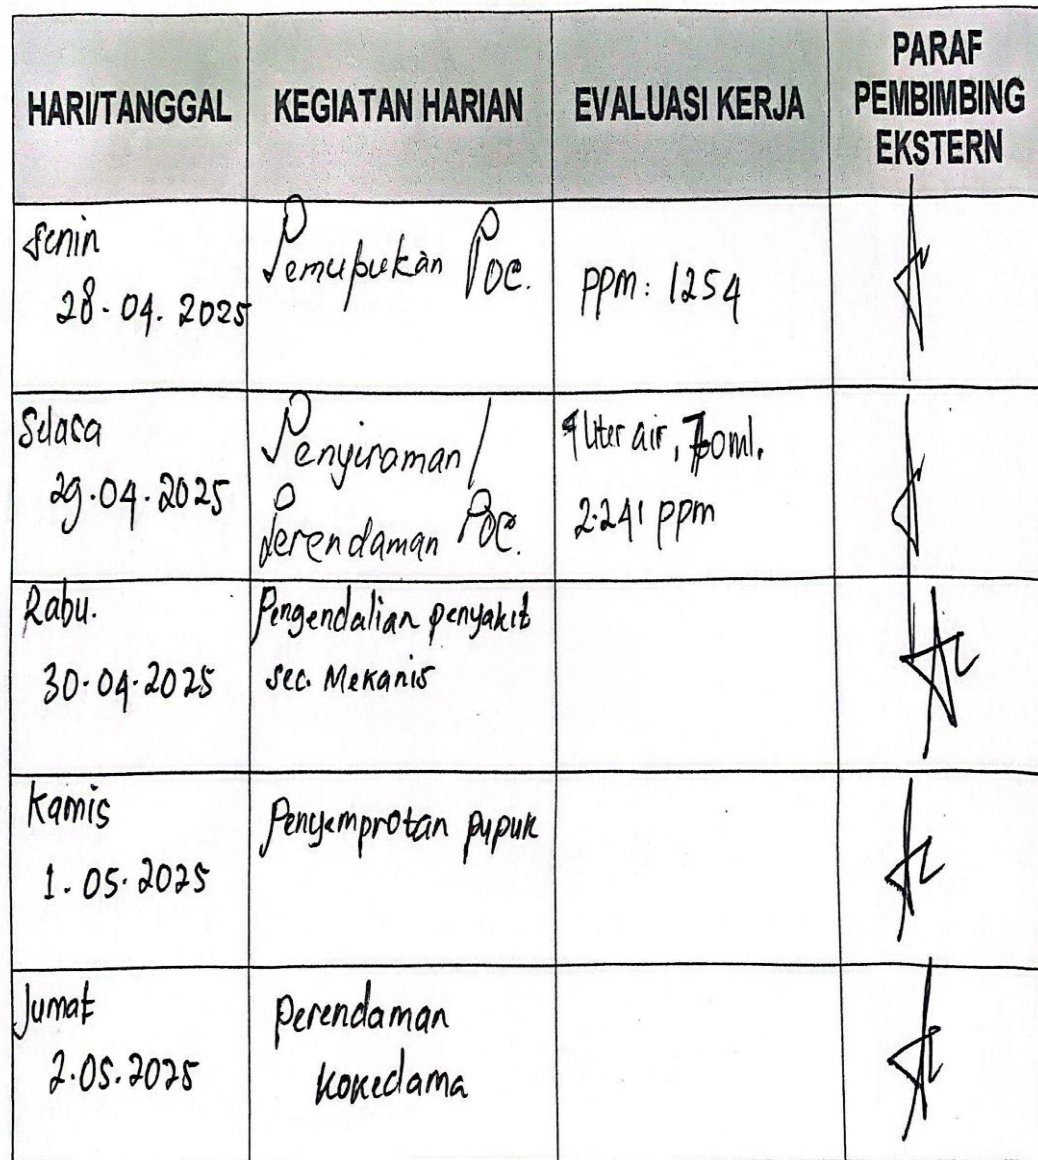 HARI/TANGGAL
KEGIATAN HARIAN
EVALUASI KERJA
PARAF
PEMBIMBING
EKSTERN
Senin
28-04.2025
Pemupukan Poc.
ppm: 1254
Selasa
29.04.2025
Penyiraman/
Perendaman Poc.
liter air,
2.241 ppm
Rabu.
30.04.2025
Pengendalian penyakit
sec. Mekanis
Kamis
1.05.2025
Penyemprotan pupuk
Jumat
2.05.2025
Perendaman
kokedama